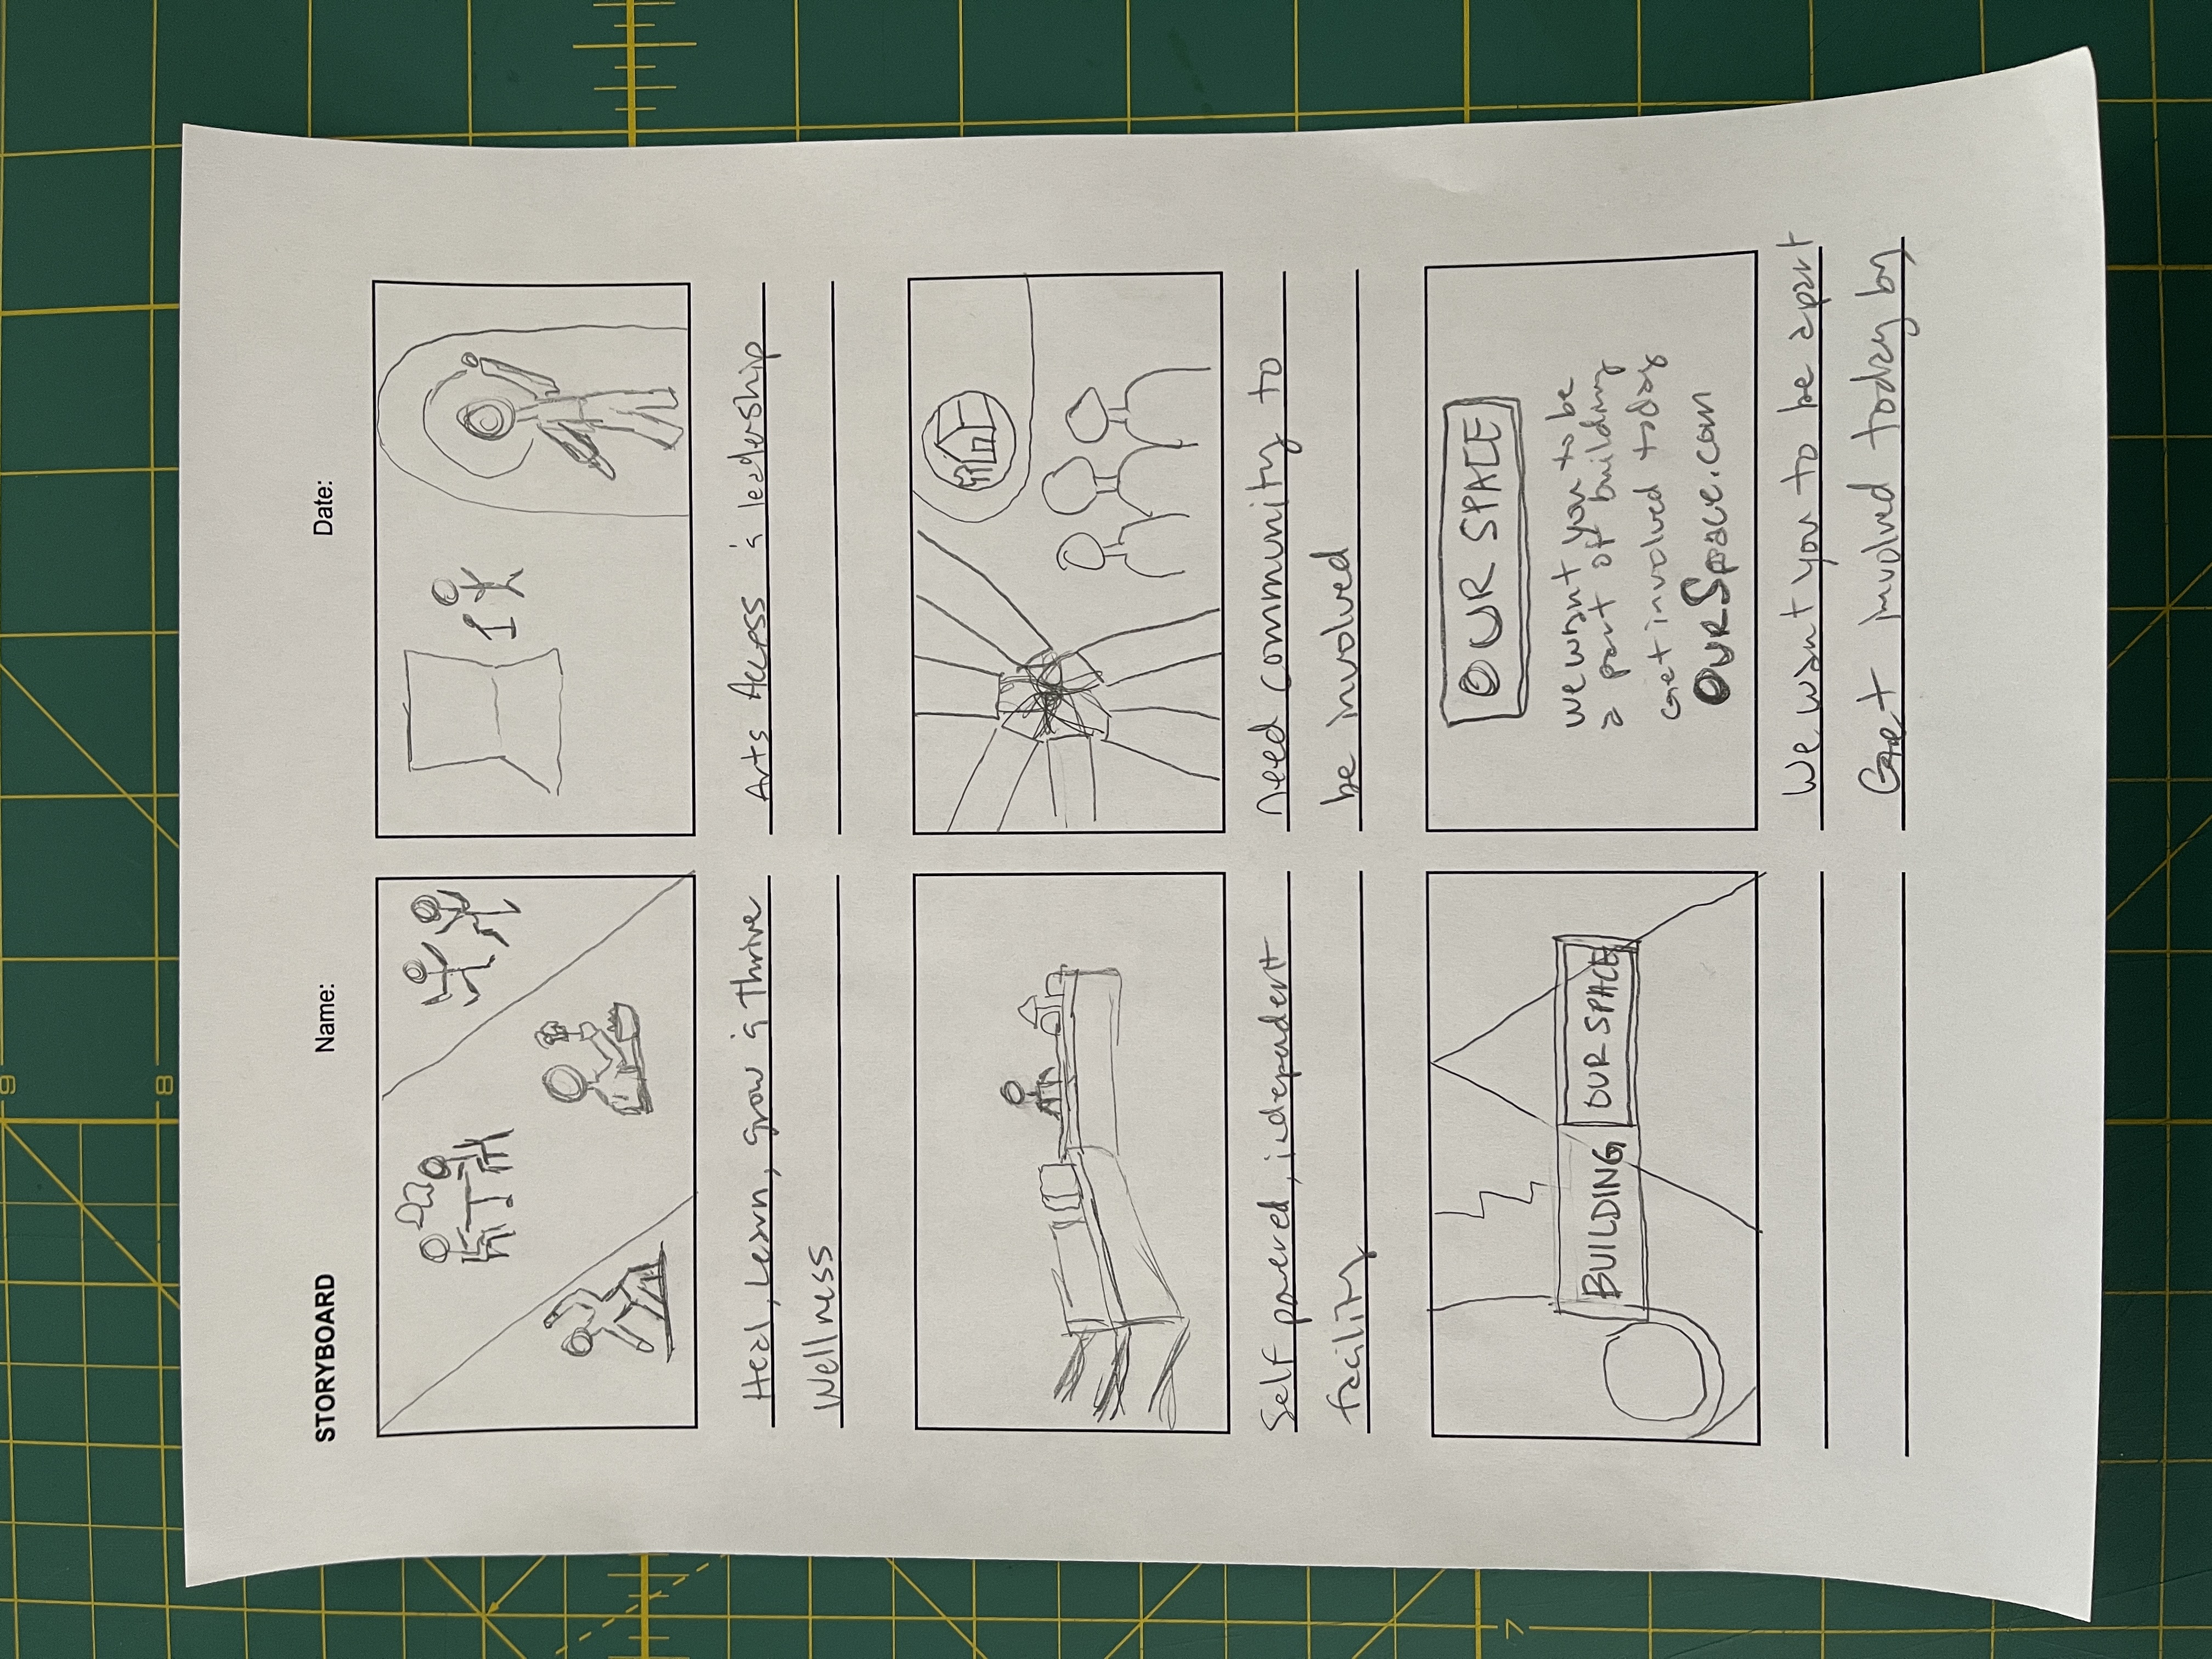 9
8
STORYBOARD Name: Date:
Heal, Learn, Grow & Thrive
Wellness
Arts Access & leadership
Self powered, independent
facility
need community to
be involved
BUILDING OUR SPACE
OUR SPACE
we want you to be
a part of building
Get involved today
OURSpace.com
We want you to be apart
Get involved today by
7